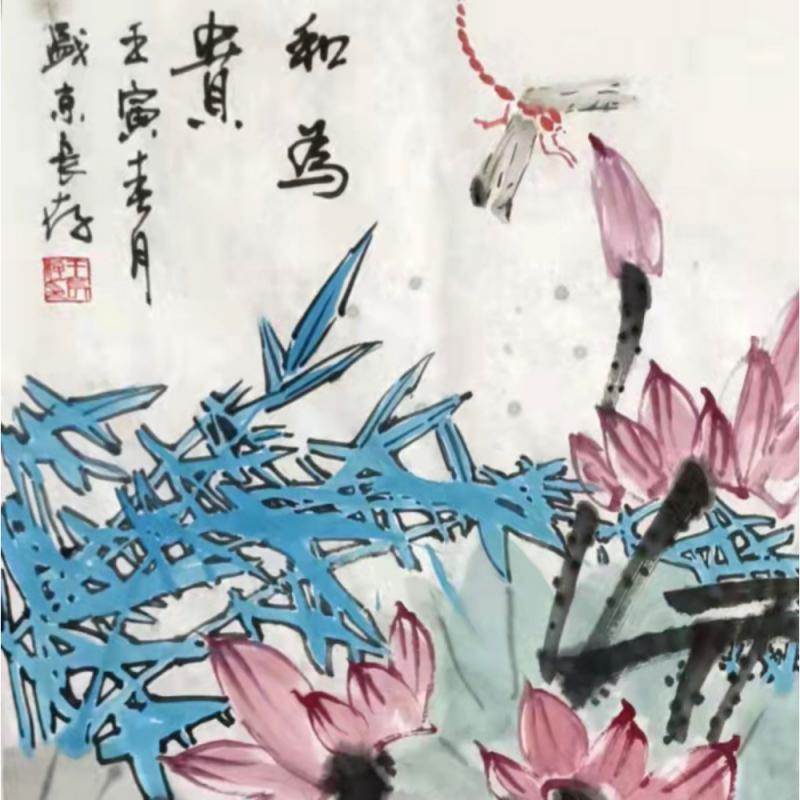 和為
貴
壬寅春月
盛京長存